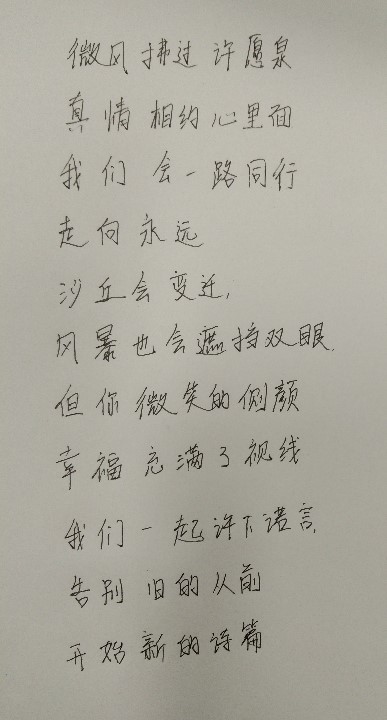 微风拂过 许愿泉
真情相约心里面
我们会一路同行
走向永远
沙丘会变迁,
风暴也会遮挡双眼.
但你微笑的侧颜
幸福充满了视线
我们一起许下诺言.
告别旧的从前
开始新的诗篇